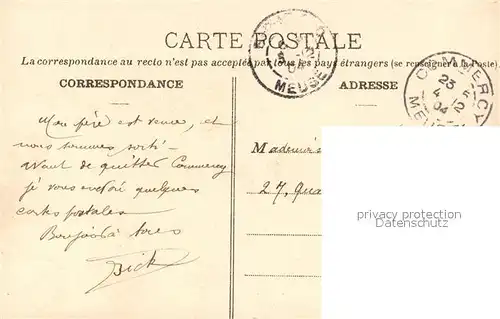 CARTE POSTALE
La correspondance au recto n'est pas acceptée par tous les pays étrangers (se renseigner à la Poste)
CORRESPONDANCE
ADRESSE
MEUSE
04
COMMERCY
23
4 12
04
Mon père est venu, et
nous sommes sortis
Avant de quitter Commercy
je vous envoie quelques
cartes postales
Bonjour à tous
Dick
Mademois
27, Qua
privacy protection
Datenschutz